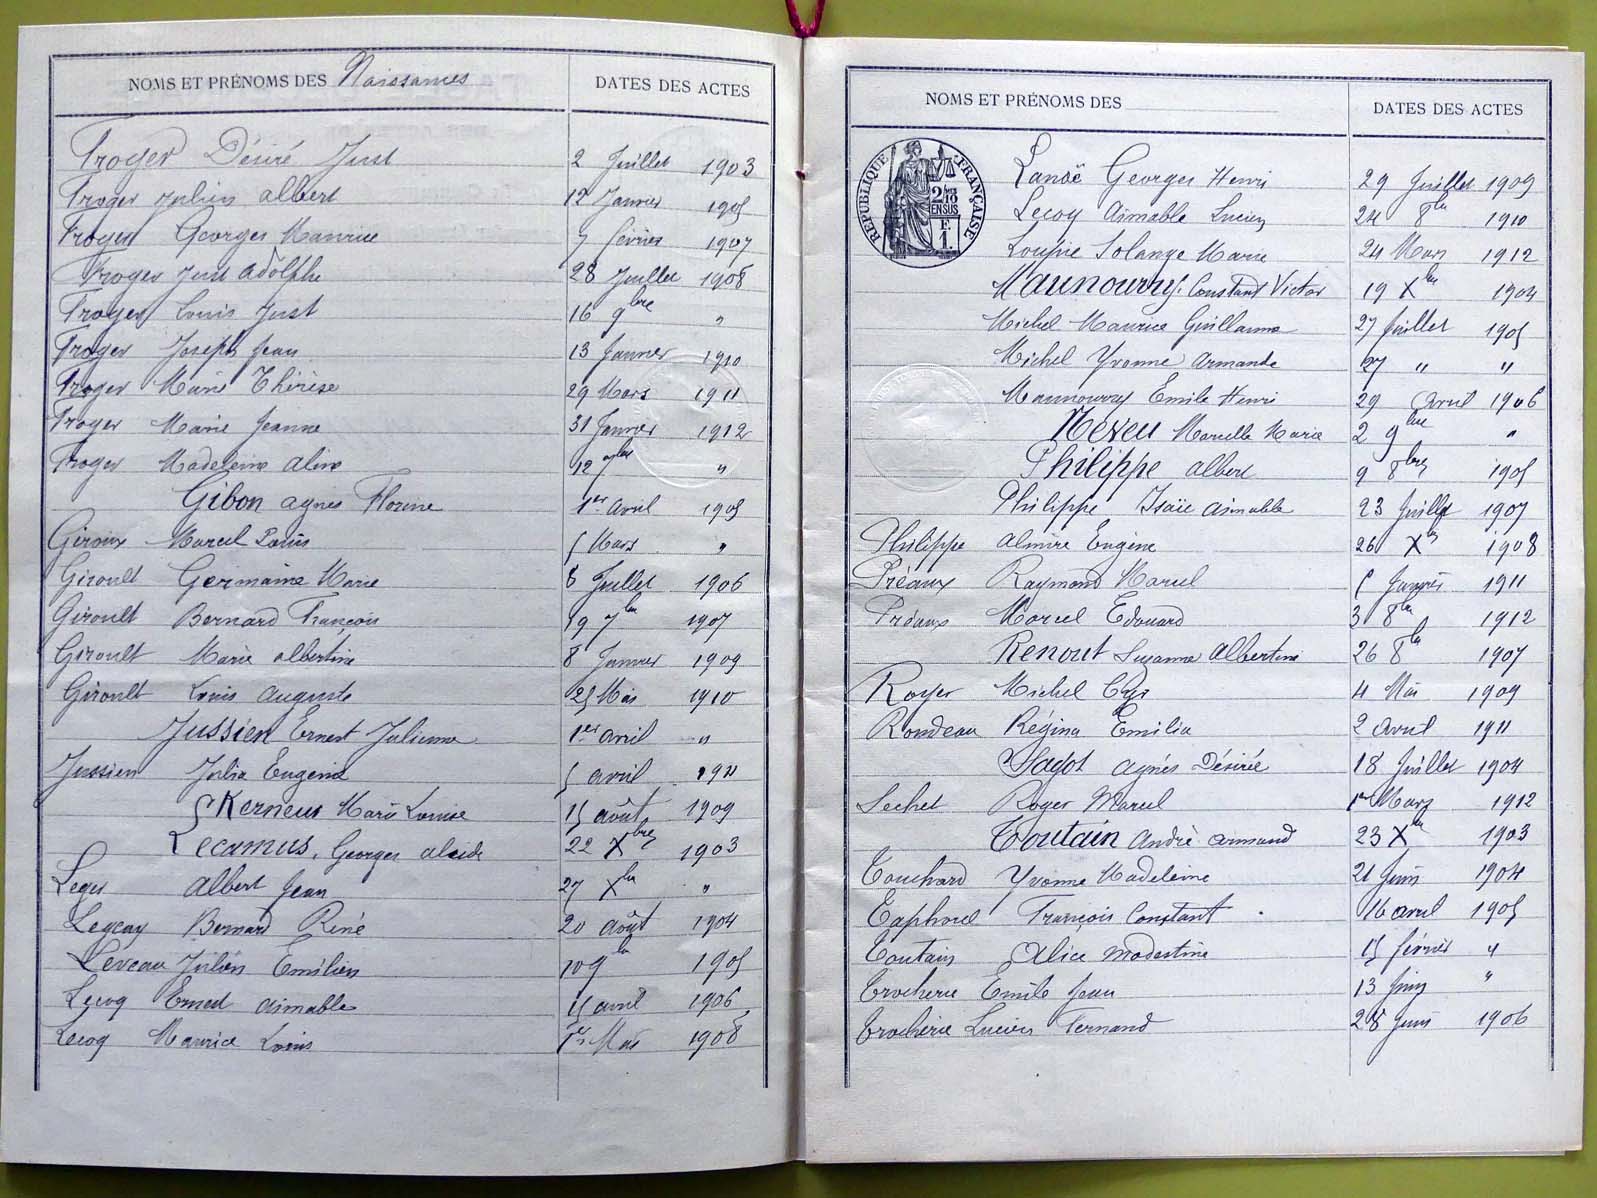 NOMS ET PRÉNOMS DES Naissances DATES DES ACTES
Troger Désiré Just 2 Juillet 1903
Troger Julien albert 12 Janvier 1905
Troger Georges Maurice 7 février 1907
Troger Just adolphe 28 Juillet 1908
Troger Louis Just 16 9bre "
Troger Joseph Jean 13 Janvier 1910
Troger Marie Thérèse 29 Mars 1911
Troger Marie Jeanne 31 Janvier 1912
Troger Madeleine aline 12 "
Gibon agnès Florine 1er avril 1905
Giroux Marcel Louis 5 Mars "
Giroult Germaine Marie 8 Juillet 1906
Giroult Bernard François 19 7bre 1907
Giroult Marie albertine 8 Janvier 1909
Giroult Louis auguste 25 Mai 1910
Jussien Ernest Julienne 1er avril "
Jussien Julia Eugénie 5 avril 1911
Kerneur Marie Louise 15 août 1909
Lecamus, Georges alcide 22 Xbre 1903
Leger albert Jean 27 Xbre "
Legeay Bernard Réné 20 août 1904
Leveau Julien Emilien 10 9bre 1905
Lecoq Ernest aimable 15 avril 1906
Lecoq Maurice Louis 1er Mai 1908
NOMS ET PRÉNOMS DES DATES DES ACTES
RÉPUBLIQUE FRANÇAISE
2/10 EN SUS
F. 1.
Lanoë Georges Henri 29 Juillet 1909
Lecoq aimable Lucien 24 8bre 1910
Loupie Solange Marie 24 Mars 1912
Maunourry Constant Victor 19 Xbre 1904
Michel Maurice Guillaume 27 Juillet 1905
Michel Yvonne armande 27 " "
Maunourry Emile Henri 29 avril 1906
Neveu Marcelle Marie 2 9bre "
Philippe albert 9 8bre 1905
Philippe Isaïe aimable 23 Juillet 1907
Philippe almire Eugène 26 Xbre 1908
Préaux Raymond Marcel Janvier 1911
Préaux Marcel Edouard 3 8bre 1912
Renout Suzanne albertine 26 8bre 1907
Royer Michel 4 Mai 1909
Rondeau Régina Emilia 2 avril 1911
Sagot agnès Désirée 18 Juillet 1904
Sechet Roger Marcel 1er Mars 1912
Toutain andré armand 23 Xbre 1903
Touchard Yvonne Madeleine 21 Juin 1904
Taphorel François Constant 16 avril 1905
Toutain Alice modestine 15 février "
Trocherie Emile Jean 13 Juin "
Trocherie Lucien Fernand 28 Juin 1906